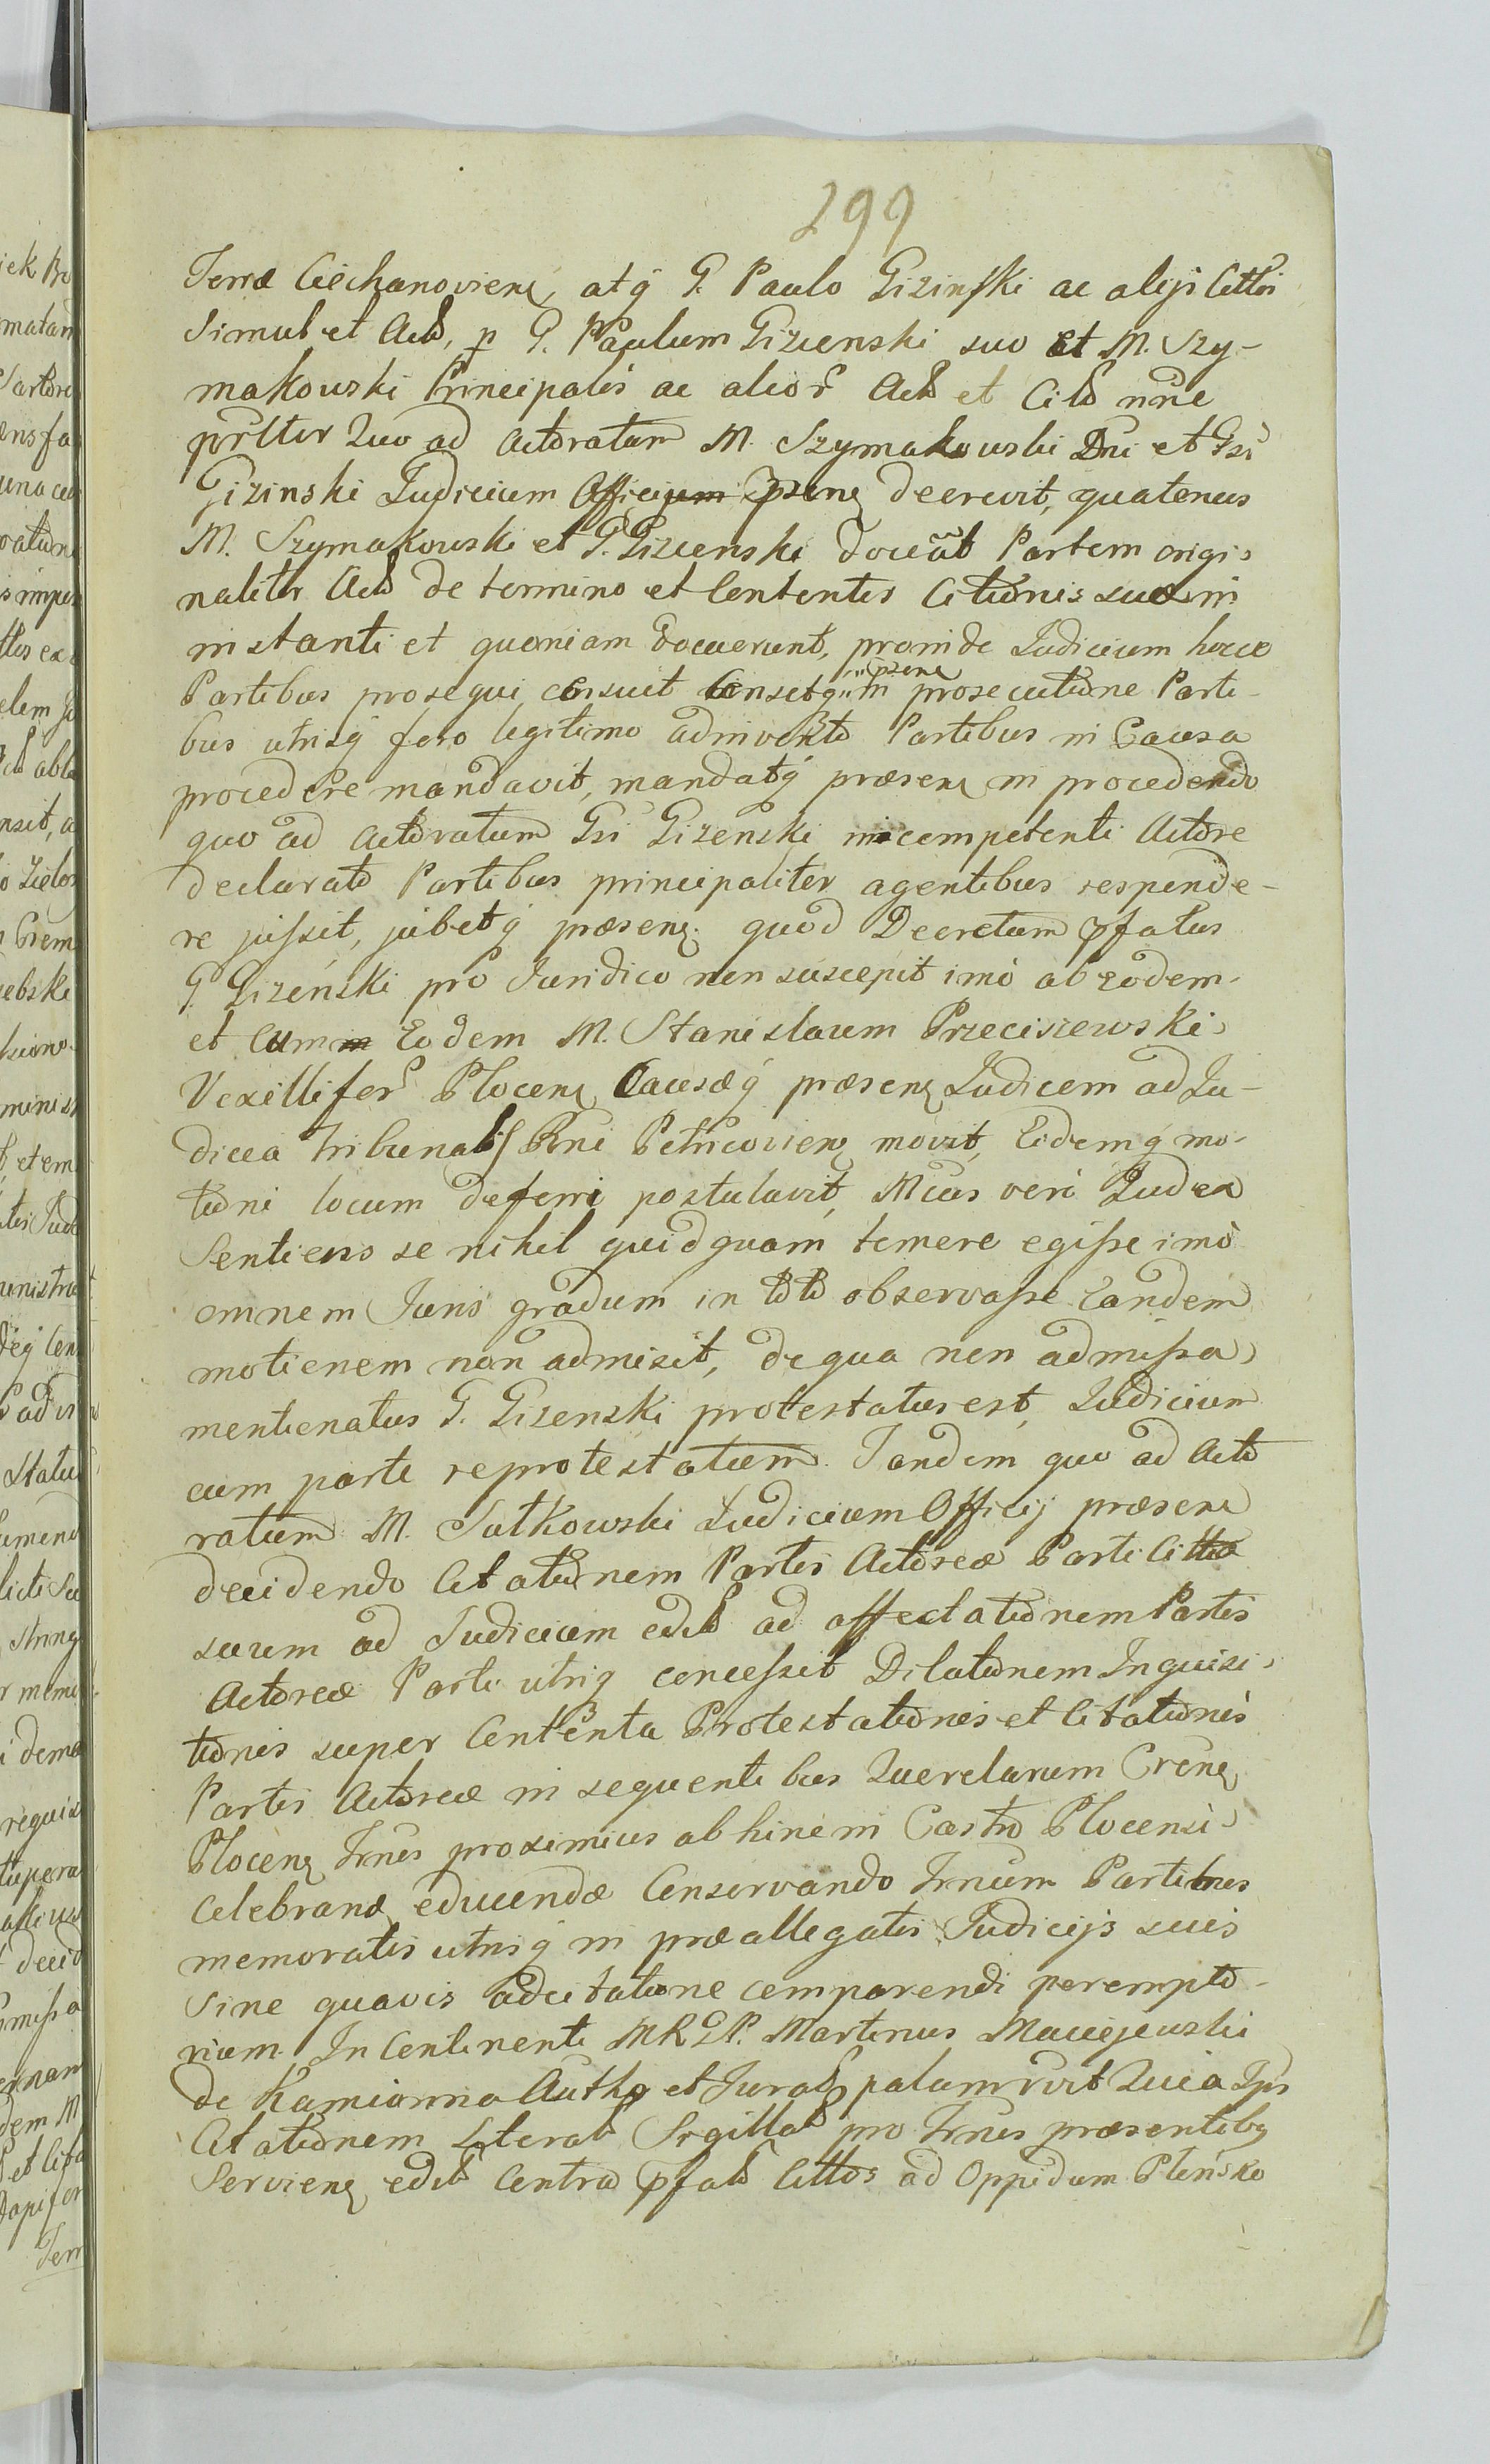 299
Terræ Ciechanoviens, atq G. Paulo Gizinski ac alijs Cittis
Simul et Actis, p G. Paulum Gizienski suo et M. Szy-
makowski Principalis ac alior Act et Cit nne
prltter Quo ad Actoratum M. Szymakowski Dni et Gsi
Gizinski Judicium Officium Ipsens decrevit, quatenus
M. Szymakowski et G. Gizienski doceat Partem origi-
naliter Act de termino et Contentis Citationis suæ in
instanti et quoniam docuerunt, proinde Judicium hocce
Partibus prosequi censuit Censetq in prosecutione Parti-
bus utrisq foro legitimo adinvento Partibus in Causa
procedere mandavit, mandatq præsens in procedendo
quo ad Actoratum Gsi Gizenski incompetenti Actore
declarato Partibus principaliter agentibus responde-
re jussit, jubetq præsens. quod Decretum pfatus
G. Gizenski pro Juridico non suscepit imò ab eodem
et Cum Eodem M. Stanislaum Przeciszewski
Vexillifer Plocens Causæq præsens Judicem ad Ju-
dicia Tribunalis Rni Petricoviens movit, Eidemq mo-
tioni locum deferri postulavit, Mcus veri Judex
Sentiens se nihil quidquam temere egisse imò
omnem Juris gradum in toto observasse Eandem
motionem non admisit, de qua non admissa
mentionatus G. Gizenski protestatus est, Judicium
cum parte reprotestatum. Tandem quo ad Acto
ratum M. Sutkowski Judicium Officij præsens
decidendo Citationem Partis Actoreæ Parti Cittæ
suum ad Judicium edit ad affectationem Partis
Actoreæ Parti utriq concessit Dilationem Inquisi-
tionis super Contenta Protestationis et Citationis
Partis Actoreæ in sequentibus Querelarum Crens
Plocens Trnis proximius ab hinc in Castro Plocensi
Celebrand educendæ Conservando Trnum Partibus
memoratis utrisq in præallegatis Judicijs suis
Sine quavis adcitatione comparendi perempto-
rium. In Continenti MRDP. Martinus Maciejewski
de Kamianna Auth et Jurat palam rvit Quia Ips
Citationem Literat Sigillat pro Trnis præsentibq
Serviens edit Contra pfat Cittos ad Oppidum Plonsko